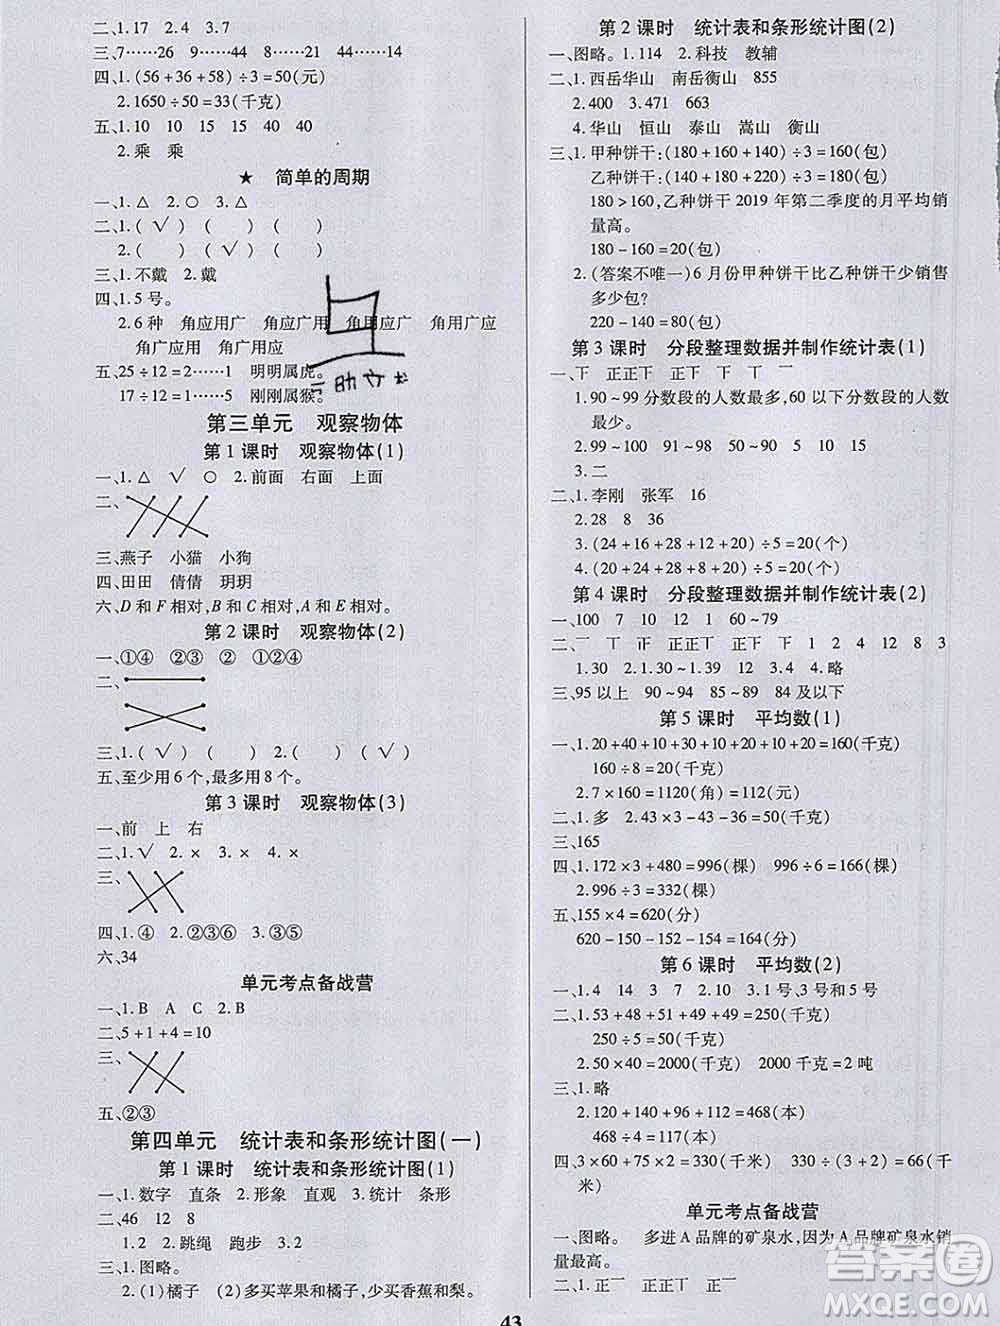 二、1.17　2.4　3.7
三、7……25　9……44　8……21　14……6
四、1.(56+36+58)÷3=50(元)
2.1650÷50=33(千克)
五、1.10　10　15　15　40　40
2.乘　乘
★　简单的周期
一、1.△　2.○　3.△
二、1.(√)　(　)　(　)
2.(　)　(√)　(　)
三、1.不戴　2.戴
四、1.5号。
2.6种　角应用广　角应广用　角用应广　角用广应
角广应用　角广用应
五、25÷12=2……1　明明属虎。
17÷12=1……5　刚刚属猴。
第三单元　观察物体
第1课时　观察物体(1)
一、1.△　√　○　2.前面　右面　上面
二、
三、燕子　小猫　小狗
四、田田　倩倩　玥玥
六、D和F相对,B和C相对,A和E相对。
第2课时　观察物体(2)
一、①④　②③　②　①②③④
二、
三、1.(√)　(　)　(　)　2.(　)　(√)
五、至少用6个,最多用8个。
第3课时　观察物体(3)
一、前　上　右
二、1.√　2.×　3.×　4.×
三、
四、1.④　2.②⑤⑥　3.③⑤
六、34
单元考点备战营
一、1.B　A　C　2.B
二、5+1+4=10
三、
五、②③
第四单元　统计表和条形统计图(一)
第1课时　统计表和条形统计图(1)
一、1.数字　直条　2.形象　直观　3.统计　条形
二、46　12　8
1.2　2.跳绳　跑步　3.2
三、1.图略。
2.(1)橘子　(2)多买苹果和橘子,少买香蕉和梨。
第2课时　统计表和条形统计图(2)
一、图略。1.114　2.科技　教辅
二、1.西岳华山　南岳衡山　855
2.400　3.471　663
4.华山　恒山　泰山　嵩山　衡山
三、1.甲种饼干:(180+160+140)÷3=160(包)
乙种饼干:(140+180+220)÷3=180(包)
180>160,乙种饼干2019年第二季度的月平均销
量高。
180-160=20(包)
2.(答案不唯一)6月份甲种饼干比乙种饼干少销售
多少包?
220-140=80(包)
第3课时　分段整理数据并制作统计表(1)
一、下　正正下　正正下　下　丅　一
1.90~99分数段的人数最多,60以下分数段的人数
最少。
2.99~100　93~94　91~92　5　10　15
3.二
二、1.李刚　张军　16
2.28　8　36
3.(24+16+28+12+20)÷5=20(个)
4.(20+24+28+8+20)÷5=20(个)
第4课时　分段整理数据并制作统计表(2)
一、100　7　10　12　1　60~79
二、一　丅　正　正正丅　正正　正下　下　1　2　4　12　8　3
1.30　2.1.30~1.39　3.1.54　4.略
三、95以上　90~94　85~89　84及以下
第5课时　平均数(1)
一、1.20+40+10+30+10+10+20+20=160(千克)
160÷8=20(千克)
2.7×160=1120(角)=112(元)
二、1.多　2.43×3-43-36=50(千克)
三、165
四、1.172×3+480=996(棵)　996÷6=166(棵)
2.996÷3=332(棵)
五、155×4=620(分)
620-150-152-150=168(分)
第6课时　平均数(2)
一、1.4　14　7　2.10　3.1号、3号和5号
二、1.53+48+51+49+49=250(千克)
250÷5=50(千克)
2.50×40=2000(千克)　2000千克=2吨
三、1.略
2.120+140+96+112=468(本)
468÷4=117(本)
四、3×60+75×2=330(千米)　330÷(3+2)=66(千
米)
单元考点备战营
一、图略。　多进A品牌的矿泉水,因为A品牌矿泉水销
量最高。
二、1.正一　正正　正一　正一
43
答案圈
MXQE.COM